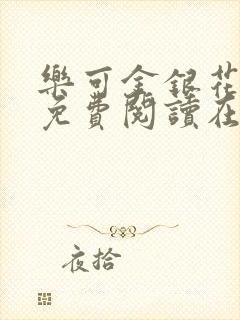 樂可金銀花
免費閱讀在
夜拾